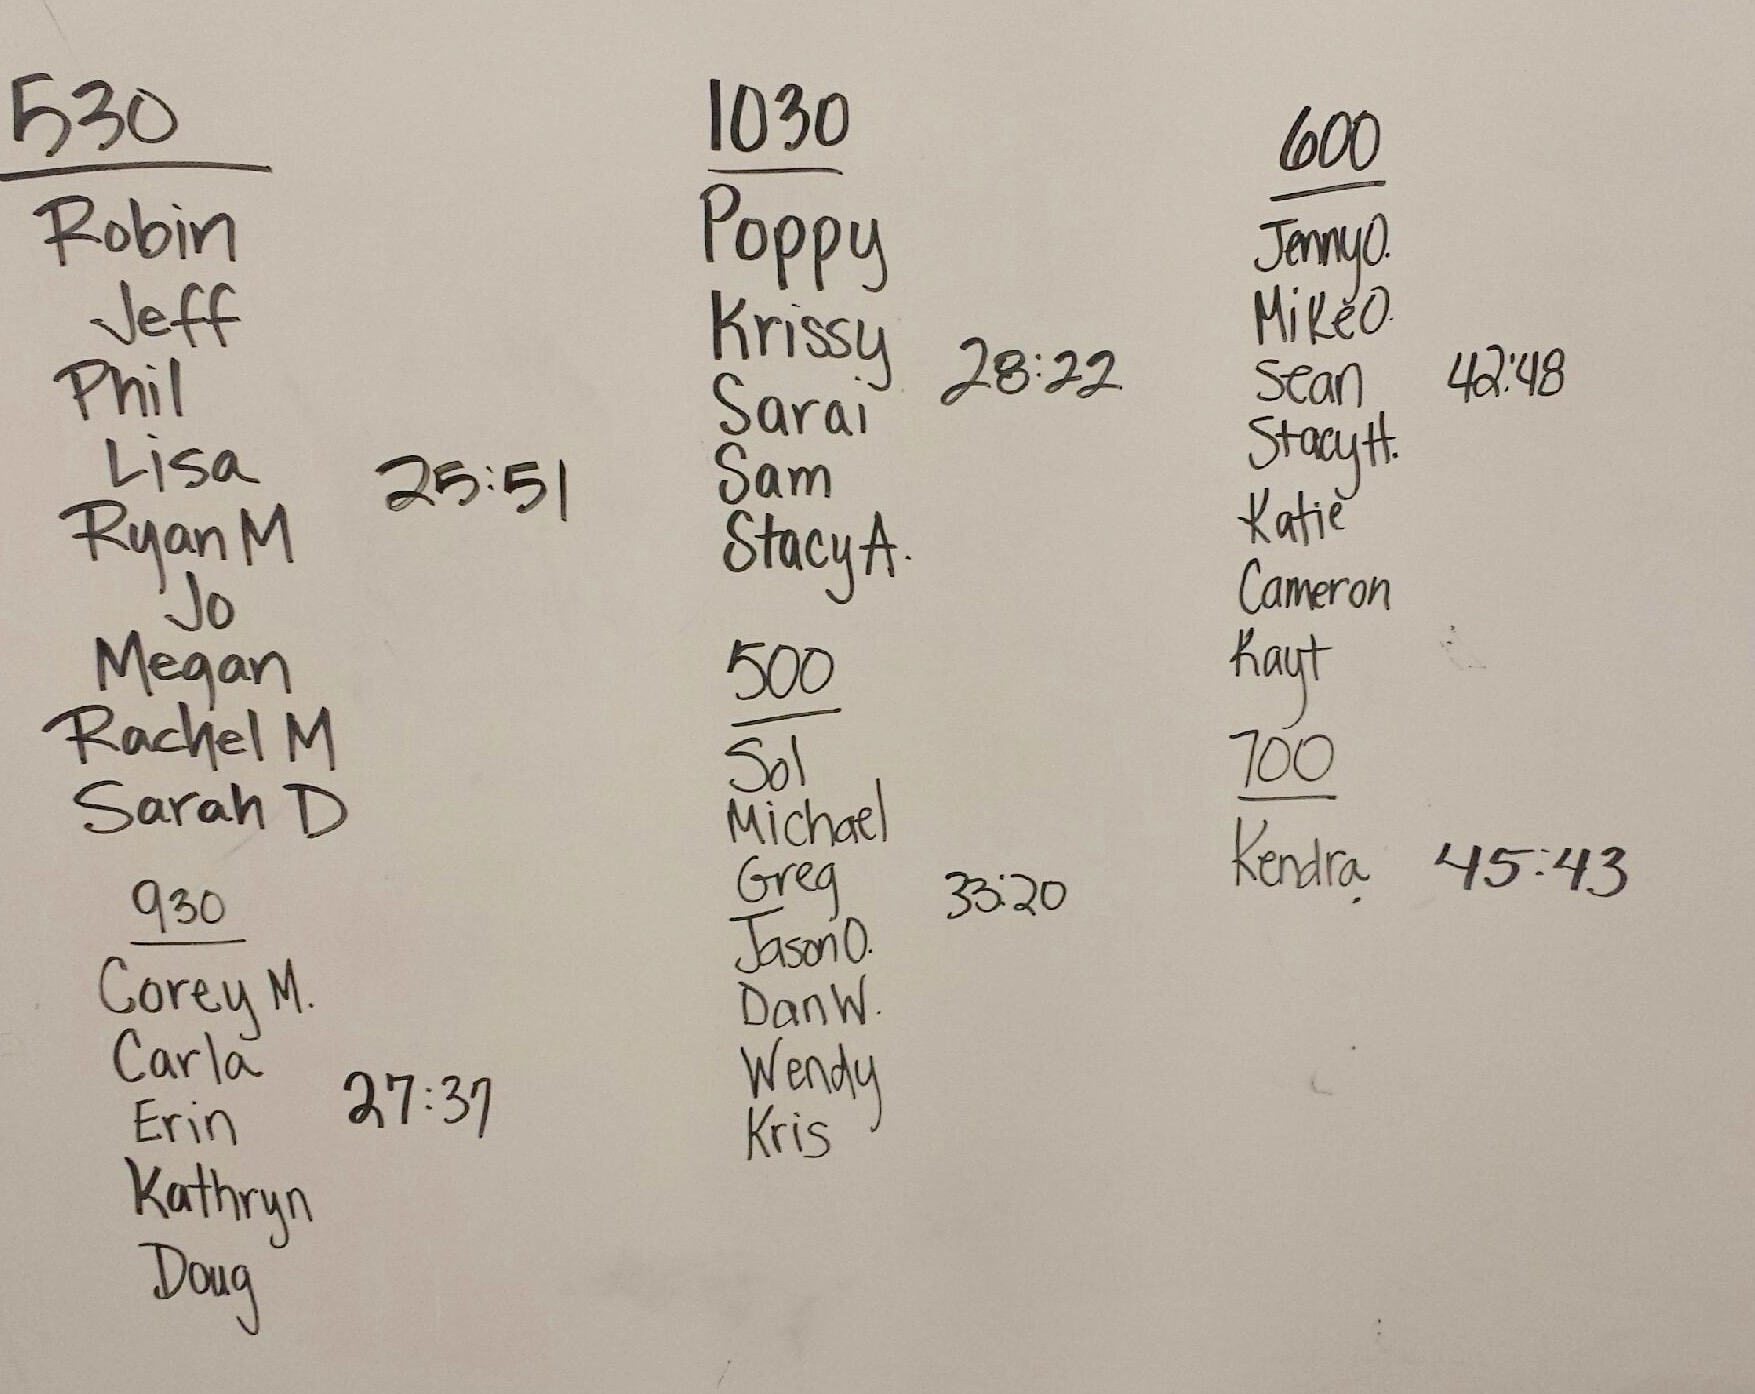 530
Robin
Jeff
Phil
Lisa
25:51
Ryan M
Jo
Megan
Rachel M
Sarah D
930
Corey M.
Carla
Erin
27:37
Kathryn
Doug
1030
Poppy
Krissy
28:22
Sarai
Sam
Stacy A.
500
Sol
Michael
Greg
33:20
Jason O.
Dan W.
Wendy
Kris
600
Jenny O.
Mike O.
Sean 42:48
Stacy H.
Katie
Cameron
Kayt
700
Kendra 45:43